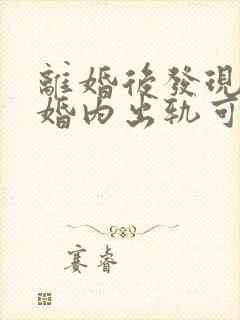 離婚後發現
婚內出軌可
赛睿